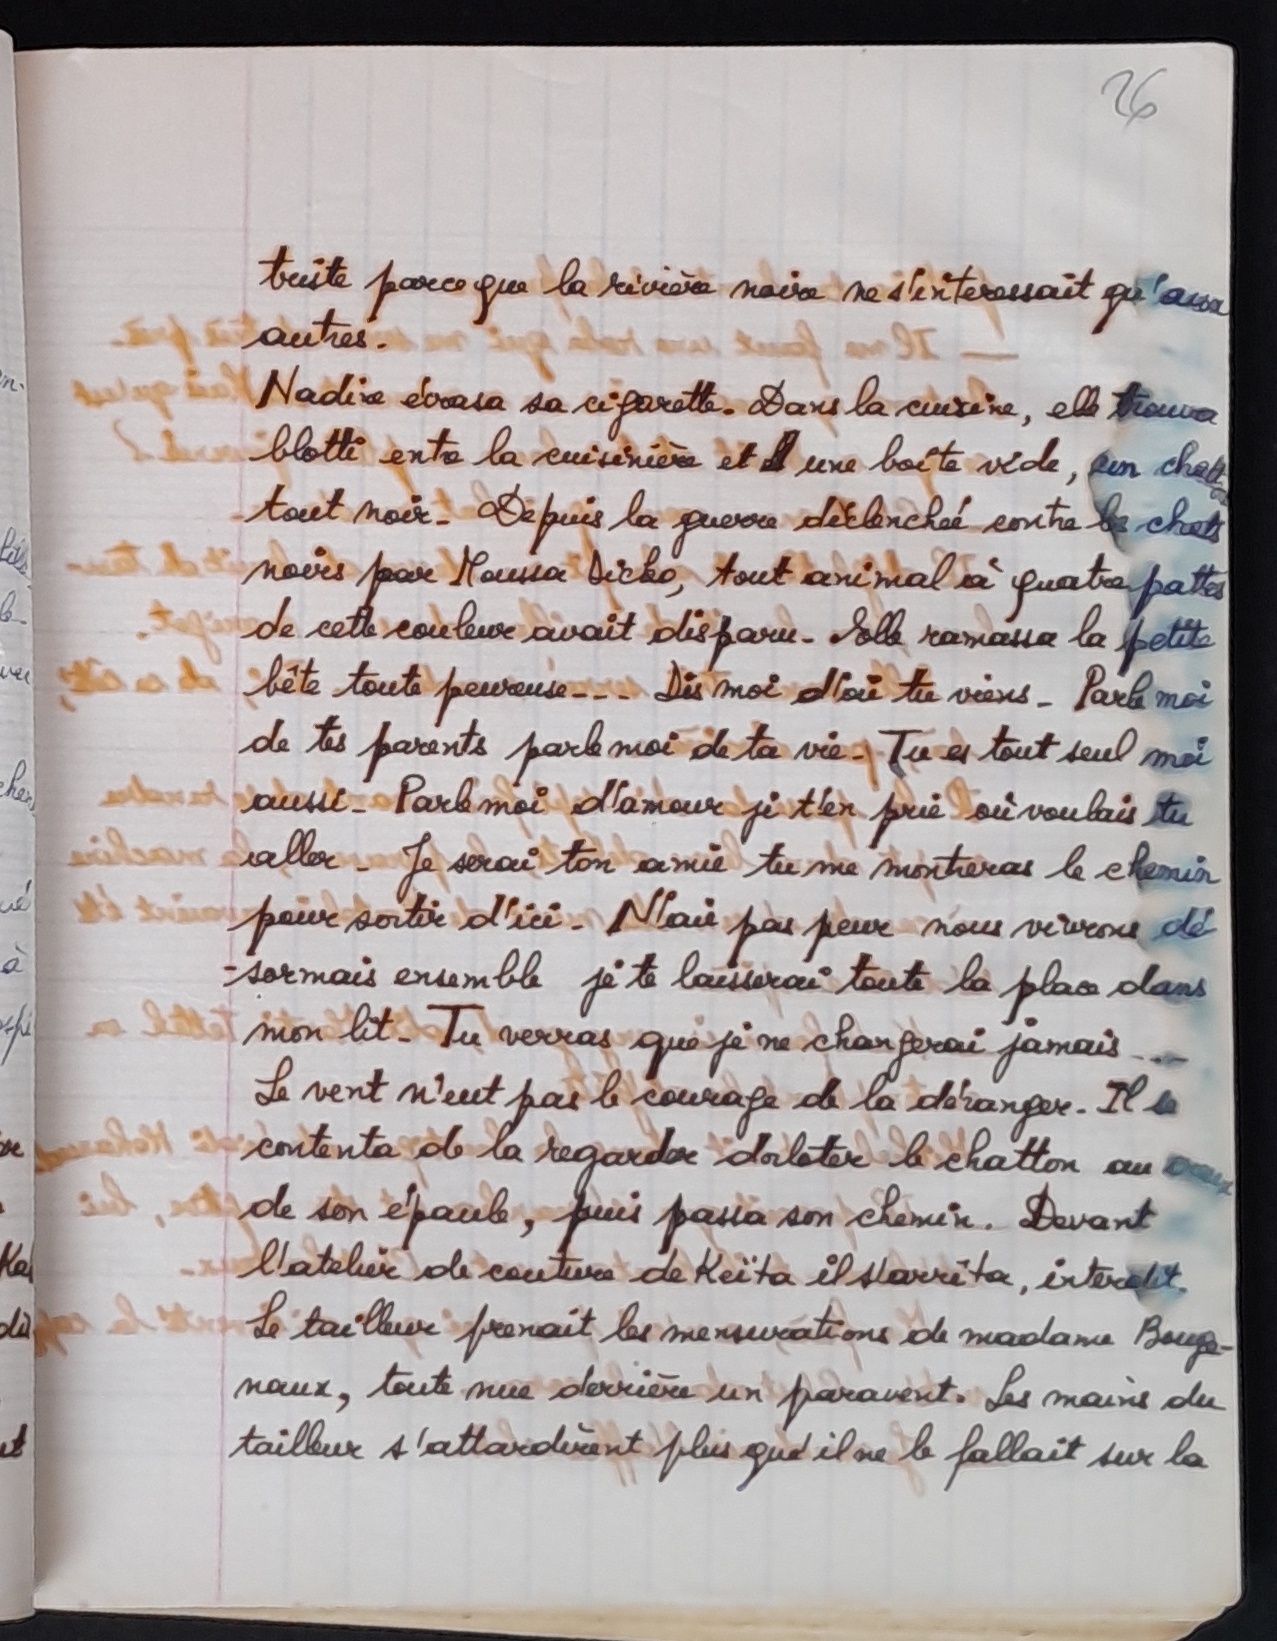 26
triste parceque la rivière noire ne s'interessait qu'aux
autres.
Nadine écrasa sa cigarette. Dans la cuisine, elle trouva
blotti entre la cuisinière et une boîte vide, un chat
tout noir. Depuis la guerre déclenchée contre les chats
noirs par Moussa Dicko, tout animal à quatre pattes
de cette couleur avait disparu. Elle ramassa la petite
bête toute peureuse... Dis moi d'où tu viens. Parle moi
de tes parents parle moi de ta vie. Tu es tout seul moi
aussi. Parle moi d'amour je t'en prie où voulais tu
aller. Je serai ton amie tu me montreras le chemin
pour sortir d'ici. N'aie pas peur nous vivrons dé
-sormais ensemble je te laisserai toute la place dans
mon lit. Tu verras que je ne changerai jamais...
Le vent n'eut pas le courage de la déranger. Il se
contenta de la regarder dorloter le chatton au creux
de son épaule, puis passa son chemin. Devant
l'atelier de couture de Keïta il s'arrêta, interdit.
Le tailleur prenait les mensurations de madame Bouge-
naux, toute nue derrière un paravent. Les mains du
tailleur s'attardèrent plus qu'il ne le fallait sur la